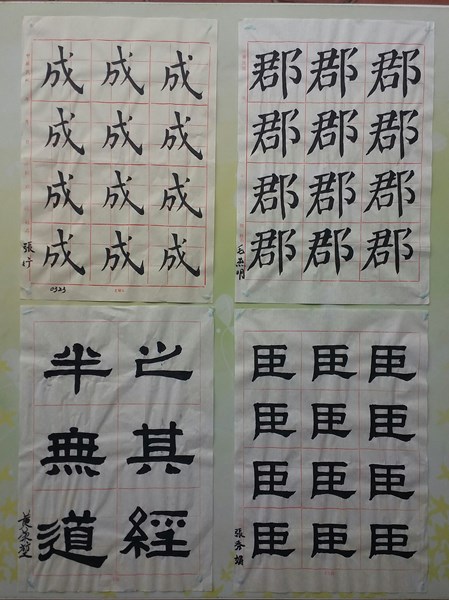 成成成成
成成成成
成成成成
0323
郡郡郡郡
郡郡郡郡
郡郡郡郡
之其經
半無道
臣臣臣臣
臣臣臣臣
臣臣臣臣
張秀娟